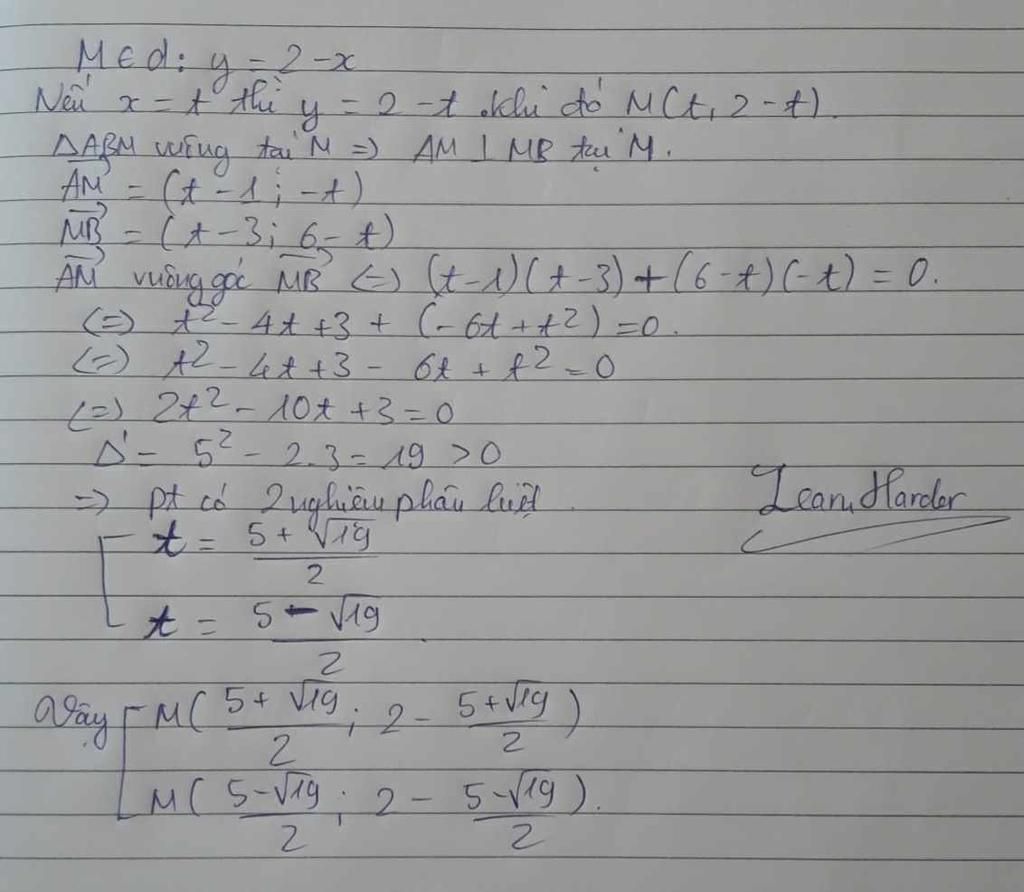 M ∈ d: y = 2 - x
Nếu x = t thì y = 2 - t. khi đó M(t, 2 - t).
ΔABM vuông tại M => AM ⊥ MB tại M.
AM = (t - 1; -t)
MB = (t - 3; 6 - t)
AM vuông góc MB <=> (t-1)(t-3)+(6-t)(-t) = 0.
<=> t² - 4t + 3 + (-6t + t²) = 0.
<=> t² - 4t + 3 - 6t + t² = 0
<=> 2t² - 10t + 3 = 0
Δ' = 5² - 2.3 = 19 > 0
=> pt có 2 nghiệm phân biệt.
Learn Harder
t = (5 + √19)/2
t = (5 - √19)/2.
Vậy M((5 + √19)/2; 2 - (5 + √19)/2)
M((5 - √19)/2; 2 - (5 - √19)/2).